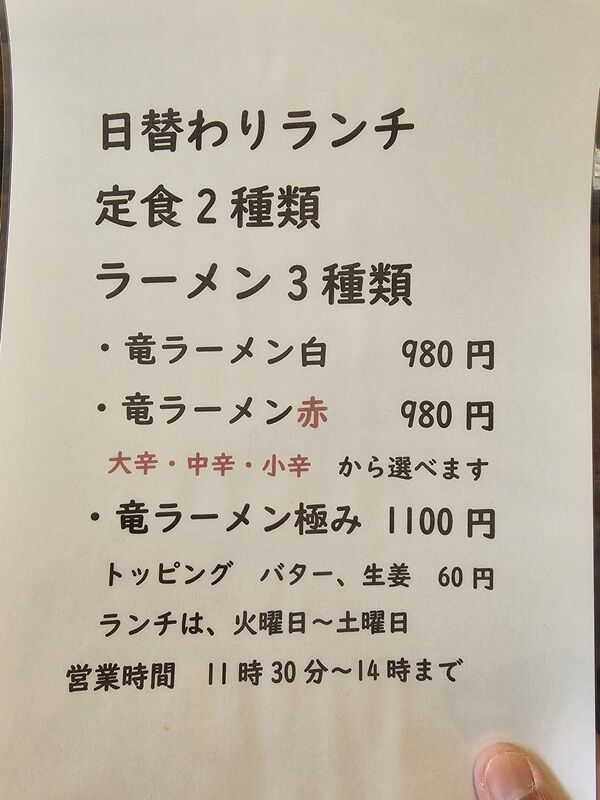 日替わりランチ
定食2種類
ラーメン3種類
・竜ラーメン白 980円
・竜ラーメン赤 980円
大辛・中辛・小辛 から選べます
・竜ラーメン極み 1100円
トッピング バター、生姜 60円
ランチは、火曜日～土曜日
営業時間 11時30分～14時まで